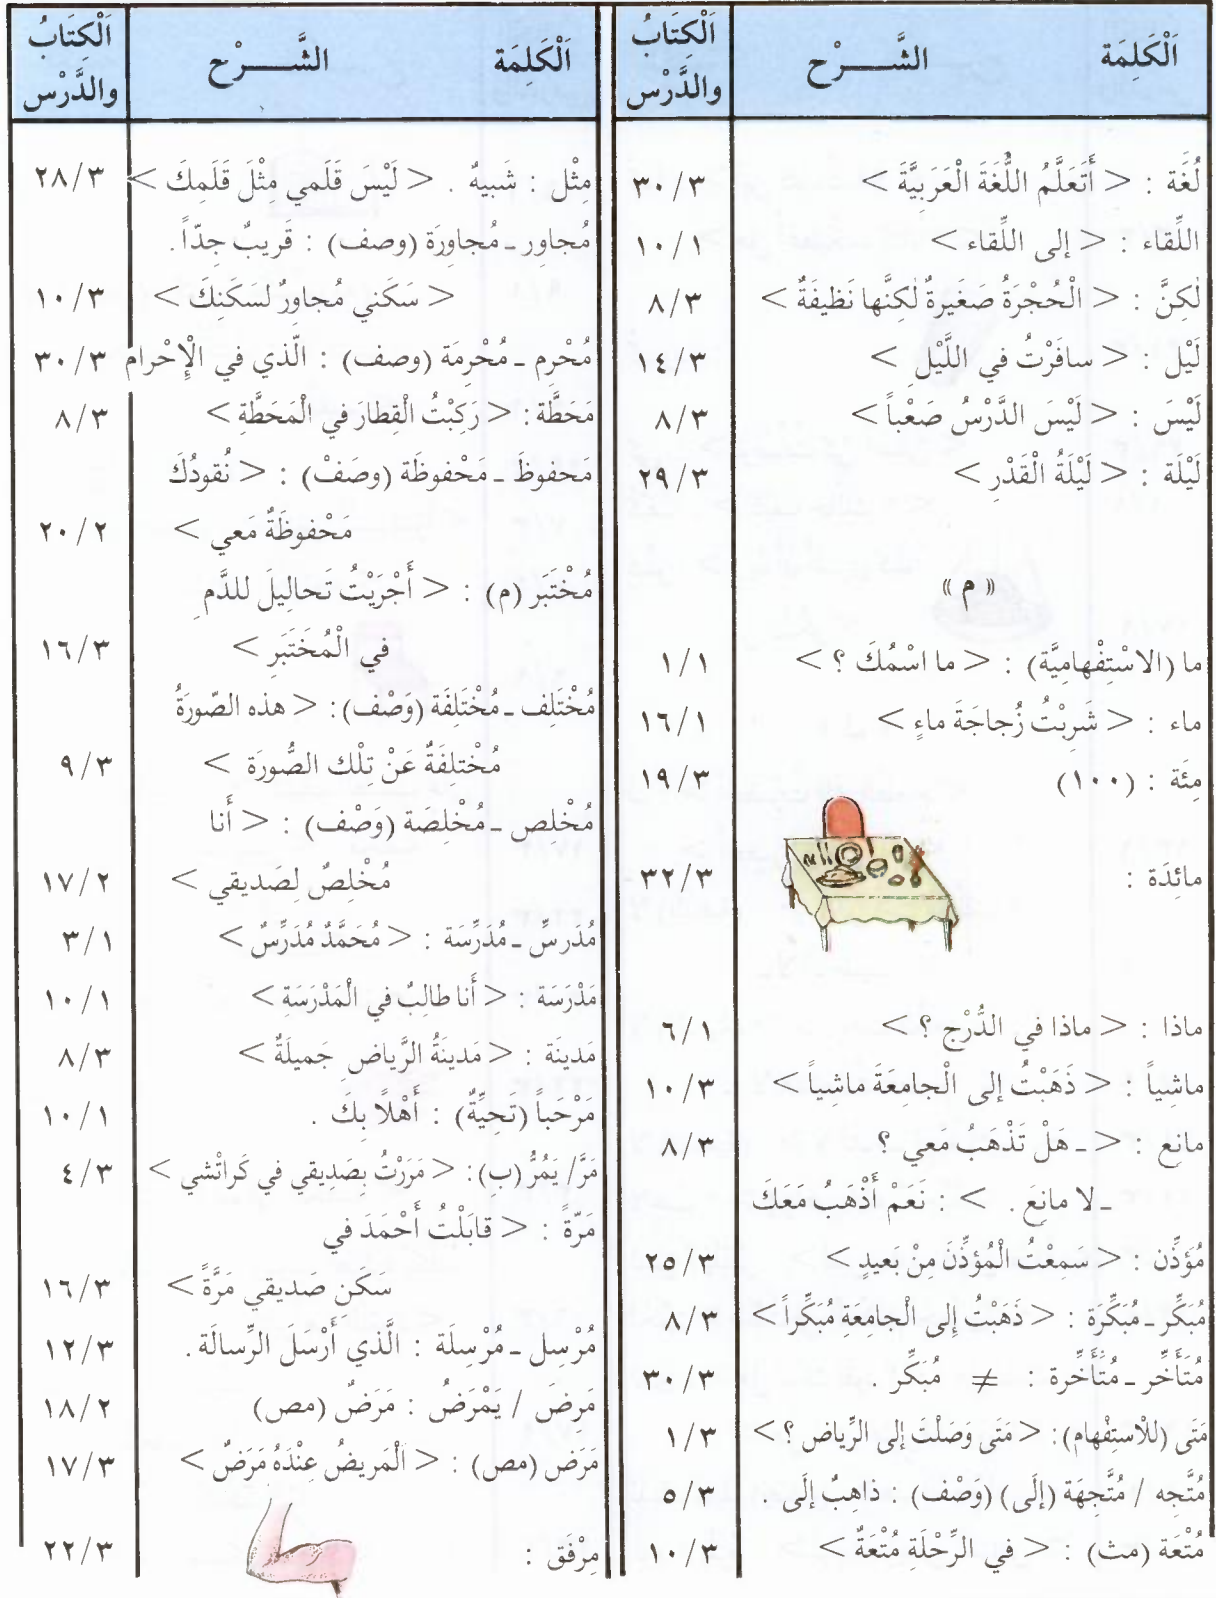 اَلْكَلِمَة الشَّـــرْح اَلْكِتَابُ والدَّرْس
لُغَة : < أَتَعَلَّمُ اللُّغَةَ الْعَرَبِيَّةَ > ٣٠/٣
اللِّقاء : < إلى اللِّقاء > ١٠/١
لٰكِنَّ : < الْحُجْرَةُ صَغيرةٌ لٰكِنَّها نَظيفَةٌ > ٨/٣
لَيْل : < سافَرْتُ في اللَّيْلِ > ١٤/٣
لَيْسَ : < لَيْسَ الدَّرْسُ صَعْباً > ٨/٣
لَيْلَة : < لَيْلَةُ الْقَدْرِ > ٢٩/٣
« م »
ما (الاسْتِفْهامِيَّة) : < ما اسْمُكَ ؟ > ١/١
ماء : < شَرِبْتُ زُجاجَةَ ماءٍ > ١٦/١
مِئَة : (١٠٠) ١٩/٣
مائدَة : ٣٢/٣
ماذا : < ماذا في الدُّرْج ؟ > ٦/١
ماشِياً : < ذَهَبْتُ إلى الْجامِعَةَ ماشِياً > ١٠/٣
مانِع : < ـ هَلْ تَذْهَبُ مَعي ؟ ٨/٣
ـ لا مانِعَ . > : نَعَمْ أَذْهَبُ مَعَكَ
مُؤَذِّن : < سَمِعْتُ الْمُؤذِّنَ مِنْ بَعيدٍ > ٢٥/٣
مُبَكِّر ـ مُبَكِّرَة : < ذَهَبْتُ إِلى الْجامِعَةِ مُبَكِّراً > ٨/٣
مُتَأَخِّر ـ مُتَأَخِّرة : ≠ مُبَكِّر . ٣٠/٣
مَتَى (للْاستِفْهام) : < مَتَى وَصَلْتَ إلى الرِّياض ؟ > ١/٣
مُتَّجِه / مُتَّجِهَة (إلَى) (وَصْف) : ذاهِبٌ إلَى . ٥/٣
مُتْعَة (مث) : < في الرِّحْلَةِ مُتْعَةٌ > ١٠/٣
اَلْكَلِمَة الشَّـــرْح اَلْكِتَابُ والدَّرْس
مِثْل : شَبيهٌ . < لَيْسَ قَلَمي مِثْلَ قَلَمِكَ > ٢٨/٣
مُجاوِر ـ مُجاوِرَة (وصف) : قَريبٌ جِدّاً .
< سَكَني مُجاورٌ لسَكَنِكَ > ١٠/٣
مُحْرِم ـ مُحْرِمَة (وصف) : الَّذي في الْإحْرام ٣٠/٣
مَحَطَّة : < رَكِبْتُ الْقِطارَ في الْمَحَطَّةِ > ٨/٣
مَحفوظَ ـ مَحْفوظَة (وصَفْ) : < نُقودُكَ
مَحْفوظَةٌ مَعي > ٢٠/٢
مُخْتَبَر (م) : < أَجْرَيْتُ تَحالِيلَ للدَّمِ
في الْمُخَتَبَرِ > ١٦/٣
مُخْتَلِف ـ مُخْتَلِفَة (وَصْف) : < هذه الصّورَةُ
مُخْتلِفَةٌ عَنْ تِلْك الصُّورَة > ٩/٣
مُخْلِص ـ مُخْلِصَة (وَصْف) : < أَنا
مُخْلِصٌ لِصَديقي > ١٧/٢
مُدَرسِّ ـ مُدَرِّسَة : < مُحَمَّدٌ مُدَرِّسٌ > ٣/١
مَدْرَسَة : < أَنا طالِبٌ في الْمَدْرَسَةِ > ١٠/١
مَدينَة : < مَدينَةُ الرَّياضِ جَميلَةٌ > ٨/٣
مَرْحَباً (تَحِيَّةٌ) : أَهْلًا بِكَ . ١٠/١
مَرَّ/ يَمُرُّ (بِ) : < مَرَرْتُ بِصَدِيقي في كَراتْشي > ٤/٣
مَرّةً : < قابَلْتُ أَحْمَدَ في
سَكَنِ صَديقي مَرَّةً > ١٦/٣
مُرْسِل ـ مُرْسِلَة : الَّذي أَرْسَلَ الرِّسالَة . ١٢/٣
مَرِضَ / يَمْرَضُ : مَرَضٌ (مص) ١٨/٢
مَرَض (مص) : < الْمَريضُ عِنْدَهُ مَرَضٌ > ١٧/٣
مِرْفَق : ٢٢/٣